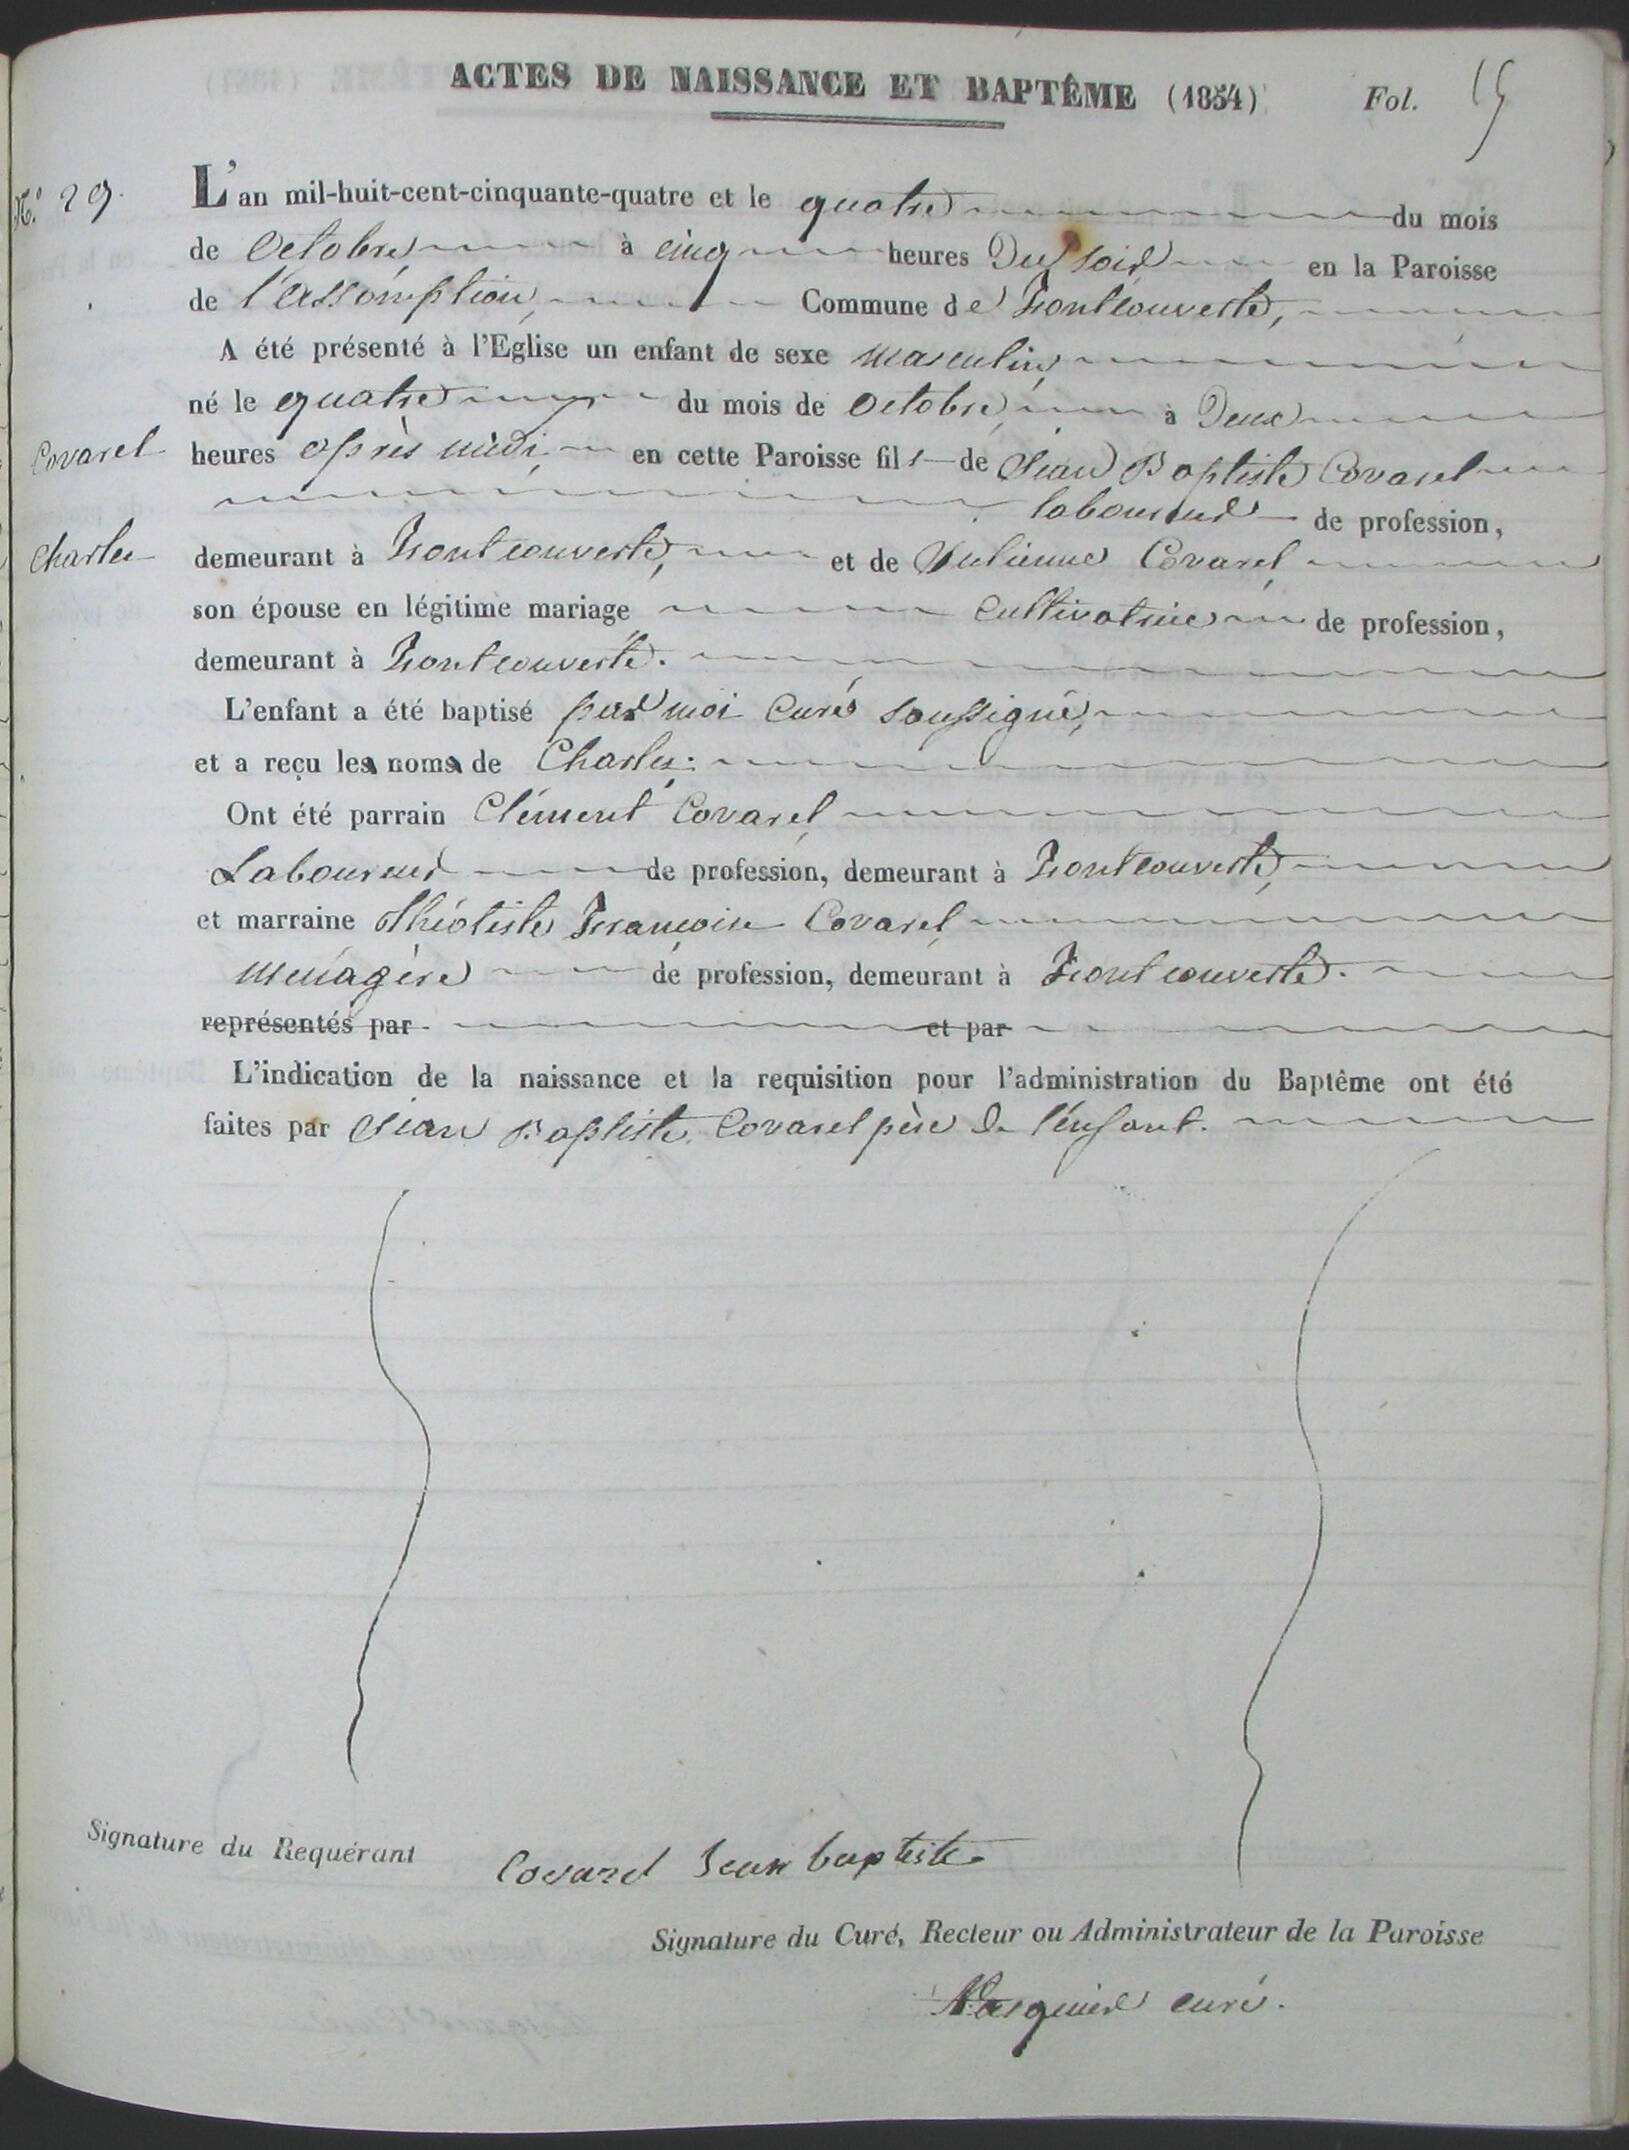 ACTES DE NAISSANCE ET BAPTÊME (1854) Fol. 15
N.° 29.
L'an mil-huit-cent-cinquante-quatre et le quatre du mois
de Octobre à cinq heures Du soir en la Paroisse
de l'assomption, Commune de Fontcouverte,
A été présenté à l'Eglise un enfant de sexe masculin,
né le quatre du mois de Octobre, à Deux
Covarel heures après midi, en cette Paroisse fils de Jean Baptiste Covarel
laboureur de profession,
Charles demeurant à Fontcouverte, et de Julienne Covarel,
son épouse en légitime mariage Cultivatrice de profession,
demeurant à Fontcouverte.
L'enfant a été baptisé par moi Curé soussigné,
et a reçu les noms de Charles.
Ont été parrain Clément Covarel,
Laboureur de profession, demeurant à Fontcouverte,
et marraine Théotiste Françoise Covarel,
ménagère de profession, demeurant à Fontcouverte.
représentés par et par
L'indication de la naissance et la requisition pour l'administration du Baptême ont été
faites par Jean Baptiste Covarel père de l'enfant.
Signature du Requérant Covarel Jean baptiste
Signature du Curé, Recteur ou Administrateur de la Paroisse
curé.